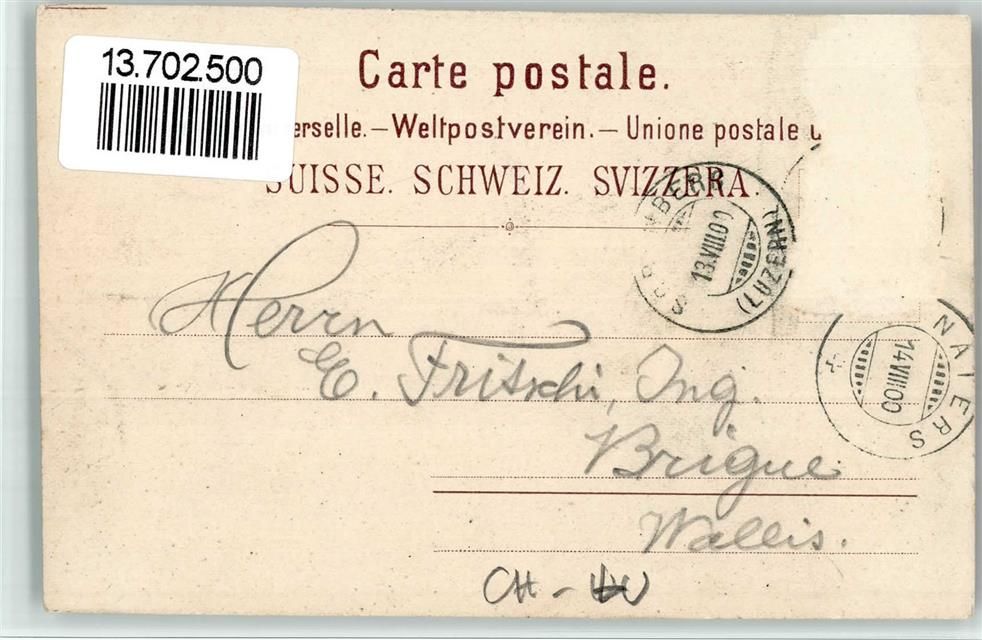 13.702.500
Carte postale.
erselle.—Weltpostverein.—Unione postale u
SUISSE. SCHWEIZ. SVIZZERA.
BERR
13.VIII.00
(LUZERN)
Herrn
E. Fritschi, Ing.
NATERS
14.VIII.00
Brigue
Wallis.
CH -